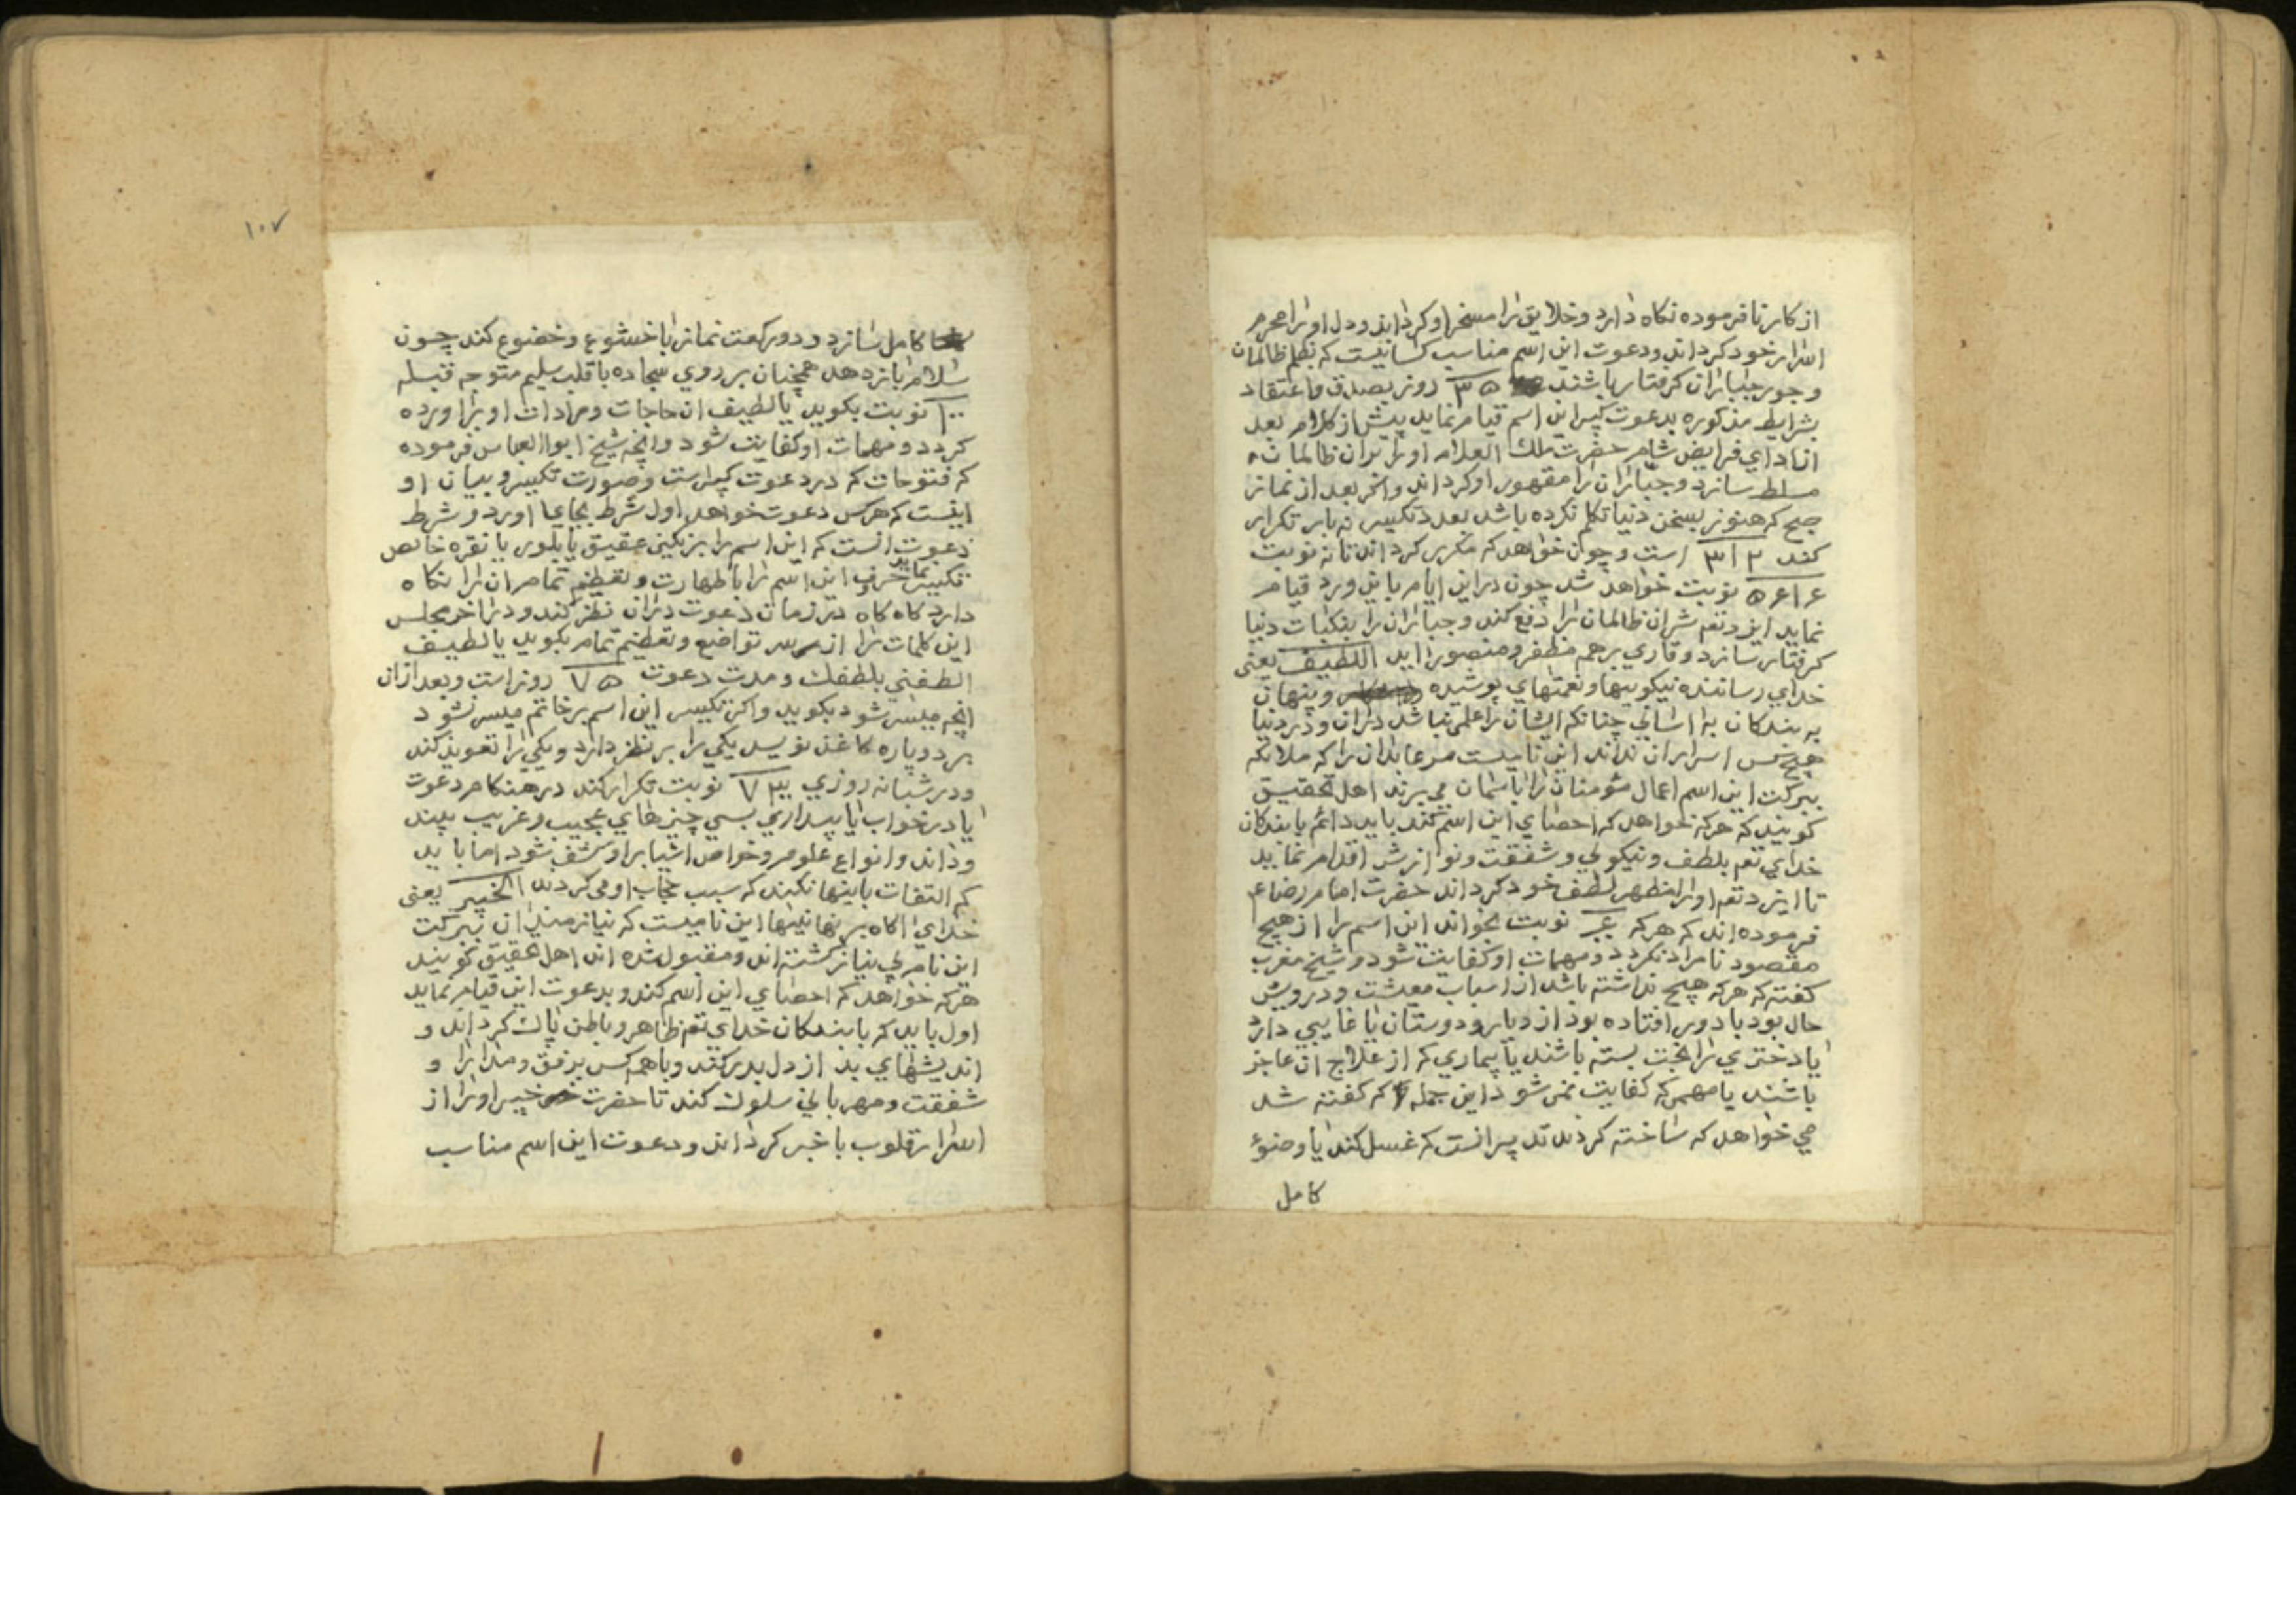 از کار نافرموده نکاه دارد وخلایق را مسخر او کرداند و دل او را محرم
اسرار خود کرداند ودعوت این اسم مناسب کسانیست که بظلم ظالمان
وجور جباران کرفتار باشند ۳۵ روز بصدق واعتقاد
بشرایط مذکوره بدعوت کبیر این اسم قیام نماید پیش از کلام بعد
از ادای فرایض شام حضرت ملك العلام او را بران ظالمان
مسلط سازد وجباران را مقهور او کرداند واخر بعد از نماز
صبح که هنوز بسخن دنیا تکلم نکرده باشد بعدد تکسیر نه بار تکرار
کند ۳۱۲ است وچون خواهد که مکرر کرداند تا نه نوبت
۵۶۱۶ نوبت خواهد شد چون دراین ایام باین ورد قیام
نماید ایزد تعم شر ان ظالمان را دفع کند وجباران را بنکبات دنیا
کرفتار سازد وقاری برجمه مظفر ومنصور اید اللطیف یعنی
خدای رساننده نیکوییها ونعمتهای پوشیده وپنهان
به بندکان به اسانی چنانکه ایشان را علمی نباشد دران ودر دنیا
هیچ کس اسرار ان نداند این نامیست مر عابدان را که ملائکه
ببرکت این اسم اعمال مؤمنان را باسمان می برند اهل تحقیق
کویند که هر که خواهد که احصای این اسم کند باید دائم با بندکان
خدای تعم بلطف ونیکویی وشفقت ونوازش اقدام نماید
تا ایزد تعم او را مظهر لطف خود کرداند حضرت امام رضا ع
فرموده اند که هر که نوبت بخواند این اسم را از هیچ
مقصود نامراد نکردد ومهمات او کفایت شود وشیخ مغرب
کفته که هر که هیچ نداشته باشد از اسباب معیشت ودرویش
حال بود یا دور افتاده بود از دیار ودوستان یا غایبی دارد
یا دختری را بخت بسته باشند یا بیماری که از علاج ان عاجز
باشند یا مهمی که کفایت نمی شود این جمله که کفته شد
می خواهد که ساخته کردد تدبیر انست که غسل کند یا وضوء
کامل
۱۰۷
کامل سازد ودو رکعت نماز با خشوع وخضوع کند چون
سلام باز دهد همچنان بر روی سجاده با قلب سلیم متوجه قبله
۱۰۰ نوبت بکوید یا لطیف ان حاجات ومرادات او براورده
کردد ومهمات او کفایت شود وانچه شیخ ابوالعباس فرموده
که فتوحات که در دعوت کبیرست وصورت تکسیر وبیان او
اینست که هرکس دعوت خواهد اول شرط بجای اورد وشرط
دعوت انست که این اسم را بر نکین عقیق یا بلور یا نقره خالص
تکسیر نماید حروف این اسم را با طهارت وتعظیم تمام ان را نکاه
دارد کاه کاه در زمان دعوت دران نظر کند ودر اخر مجلس
این کلمات را از سر تواضع وتعظیم تمام بکوید یا لطیف
الطفنی بلطفك ومدت دعوت ۷۵ روز است وبعد ازان
انچه میسر شود بکوید واکر تکسیر این اسم بر خاتم میسر نشود
بر دو پاره کاغذ نویسد یکی را بر نظر دارد ویکی را تعویذ کند
ودر شبانه روزی نوبت تکرار کند در هنکام دعوت
یا در خواب یا بیداری بسی چیزهای عجیب وغریب بیند
وداند وانواع علوم وخواص اشیا بر او کشف شود اما باید
که التفات باینها نکند که سبب حجاب او می کردد الخبیر یعنی
خدای اکاه بر نهانیها این نامیست که نیازمندان ببرکت
این نام بی نیاز کشته اند ومقبول شده اند اهل تحقیق کویند
هر که خواهد که احصای این اسم کند وبدعوت این قیام نماید
اول باید که با بندکان خدای تعم ظاهر وباطن پاك کرداند و
اندیشهای بد از دل بدر کند وبا همه کس برفق ومدارا و
شفقت ومهربانی سلوك کند تا حضرت خبیر او را از
اسرار قلوب باخبر کرداند ودعوت این اسم مناسب